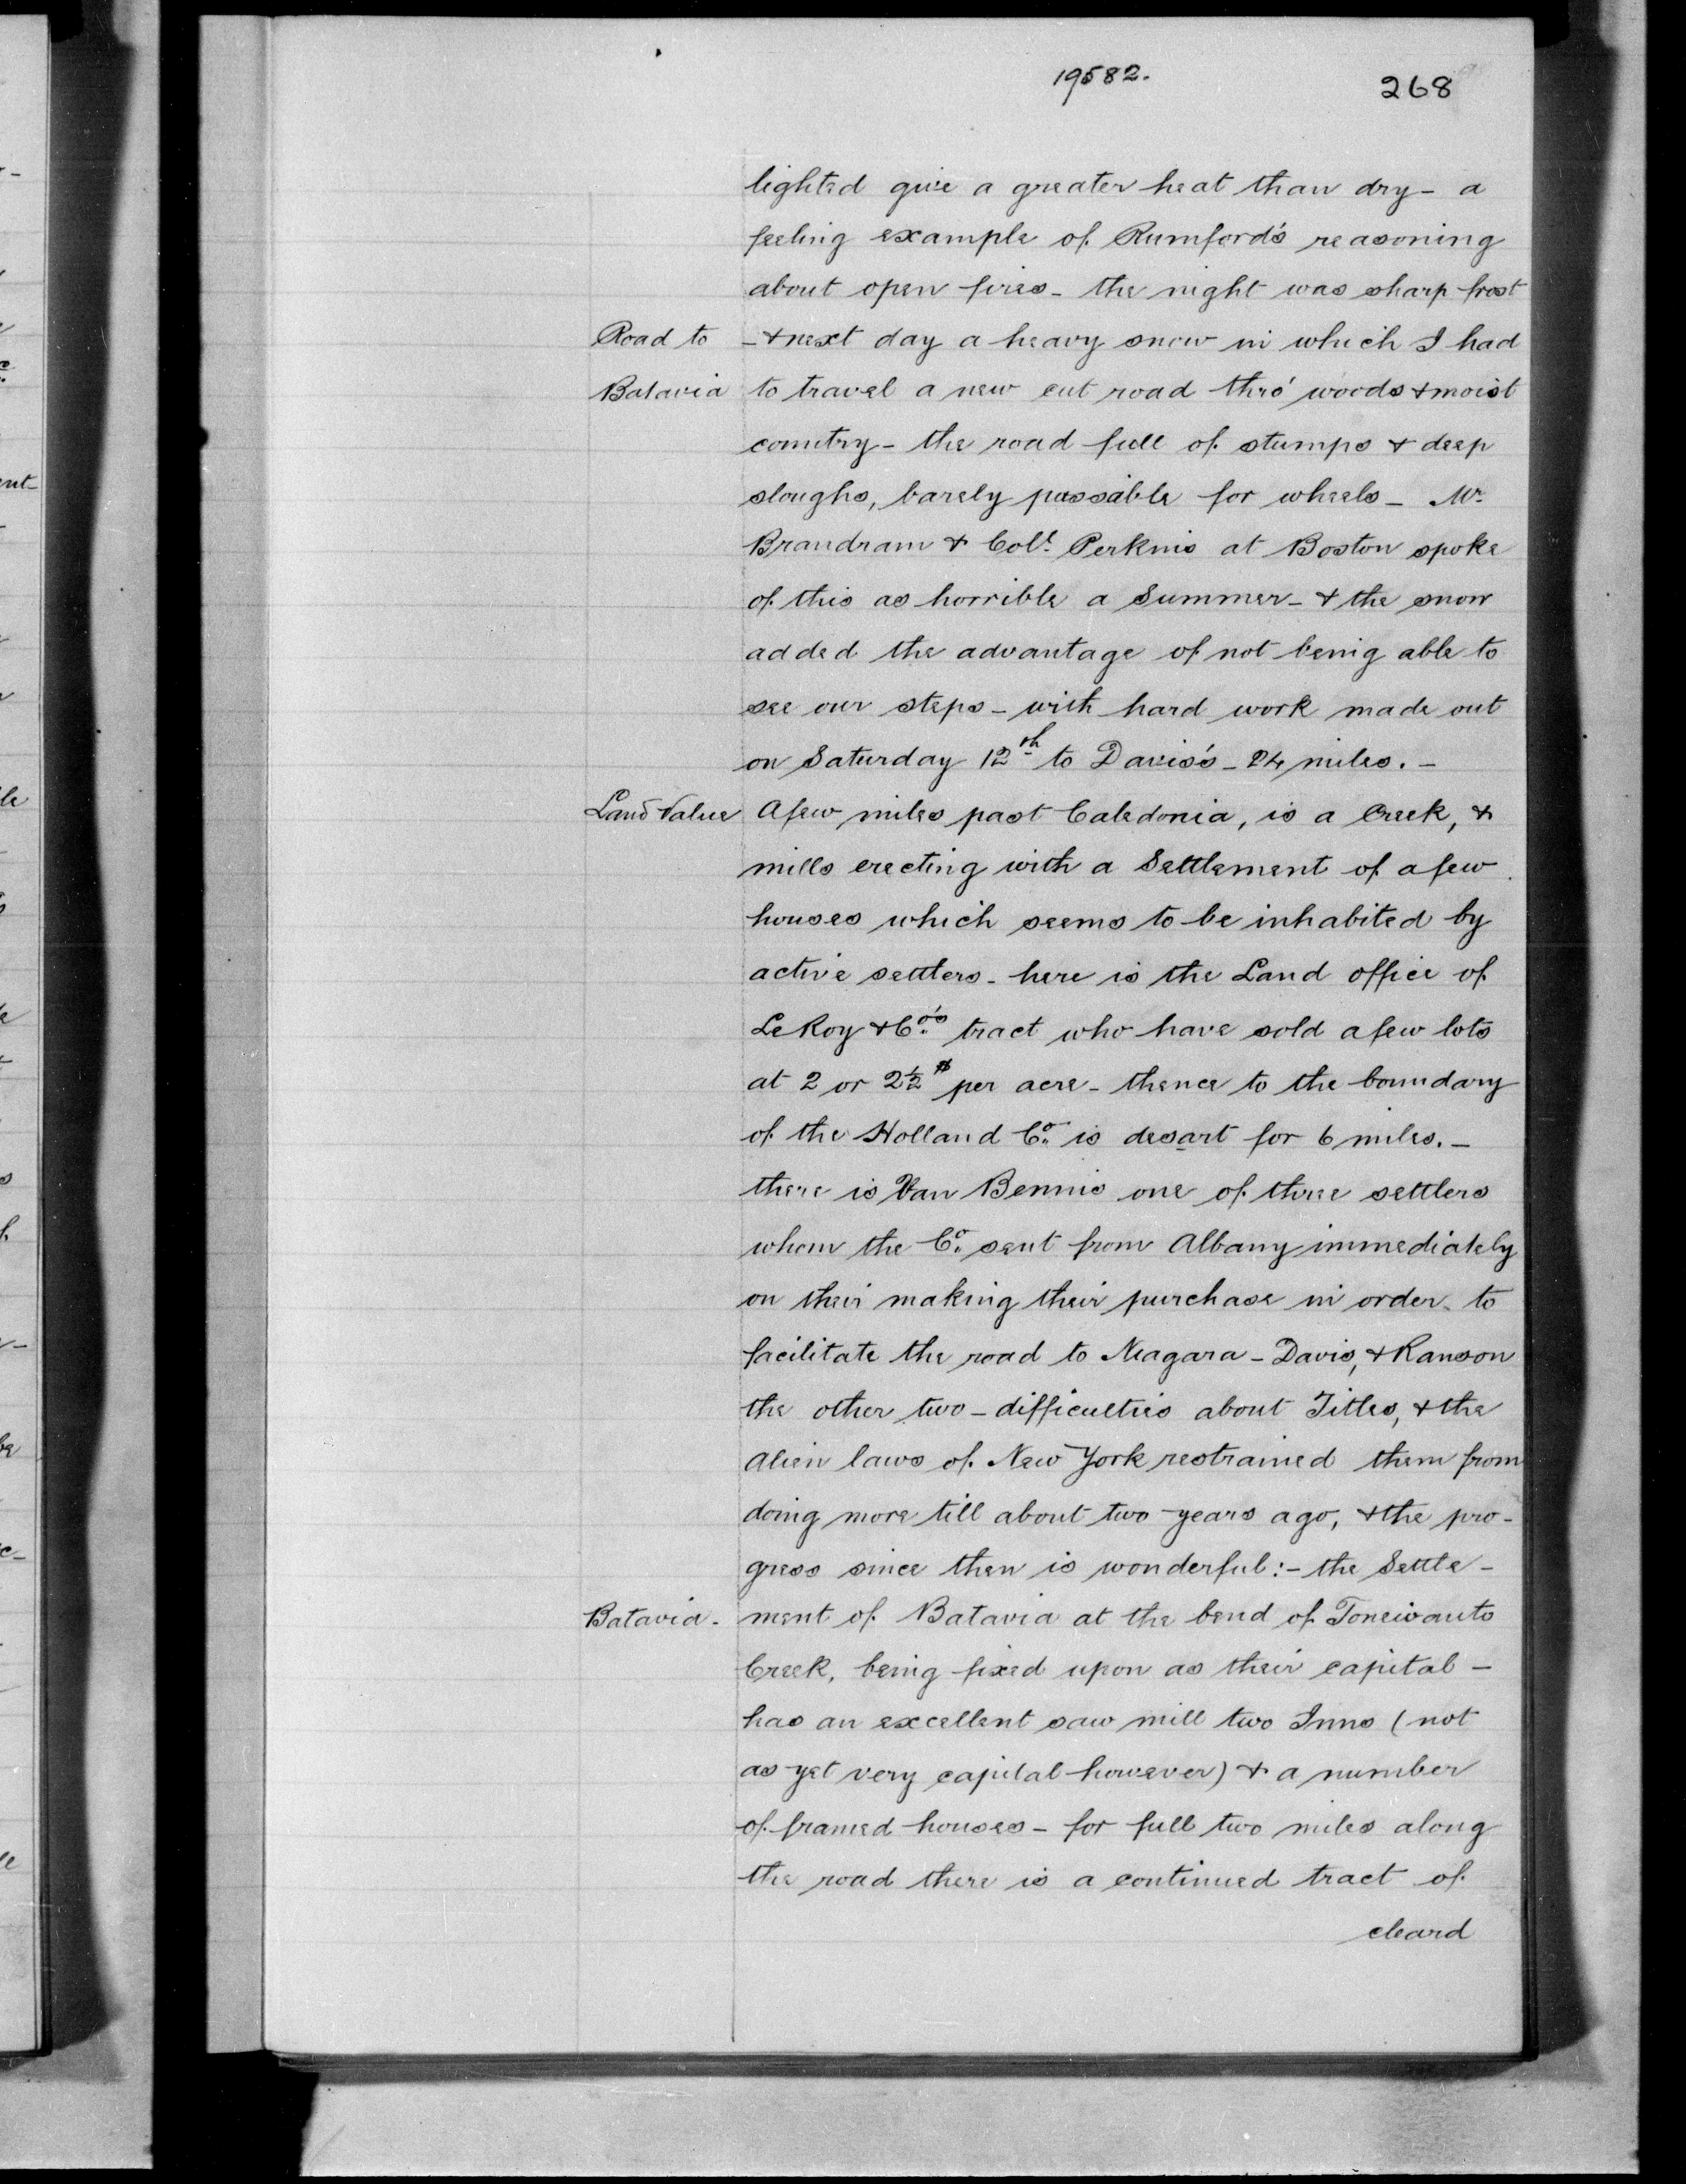 19582.
268
lighted give a greater heat than dry - a
feeling example of Rumford's reasoning
about open fires - the night was sharp frost
Road to - & next day a heavy snow in which I had
Batavia to travel a new cut road thro' woods & moist
country - the road full of stumps & deep
sloughs, barely passable for wheels - Mr.
Brandram & Coll. Perkins at Boston spoke
of this as horrible a Summer - & the snow
added the advantage of not being able to
see our steps - with hard work made out
on Saturday 12th to Davis's - 24 miles. -
Land Value A few miles past Caledonia, is a Creek, &
mills erecting with a Settlement of a few
houses which seems to be inhabited by
active settlers - here is the Land office of
LeRoy & Co's tract who have sold a few lots
at 2 or 2½ $ per acre - thence to the boundary
of the Holland Co. is desart for 6 miles. -
there is Van Bennis one of three settlers
whom the Co. sent from Albany immediately
on their making their purchase in order to
facilitate the road to Neagara - Davis, & Ranson
the other two - difficulties about Titles, & the
Alien laws of New York restrained them from
doing more till about two years ago, & the pro-
gress since then is wonderful: - the Settle-
Batavia - ment of Batavia at the bend of Tonewanto
Creek, being fixed upon as their capital -
has an excellent saw mill two Inns (not
as yet very capital however) & a number
of framed houses - for full two miles along
the road there is a continued tract of
cleard